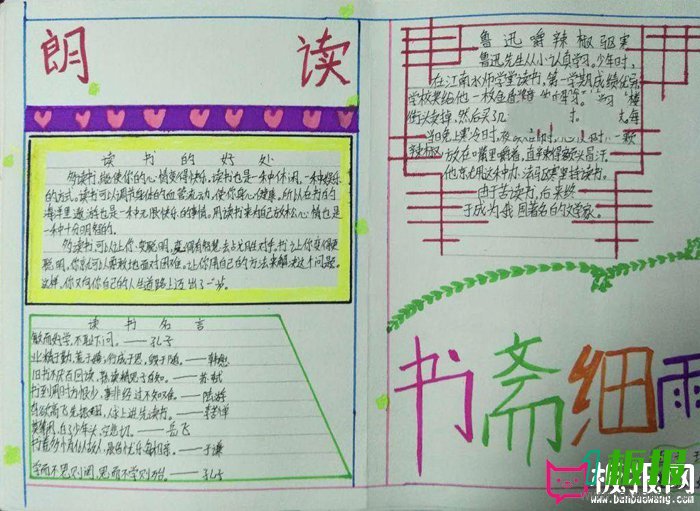 朗 读
读书的好处
多读书,能使你的心情变得快乐。读书也是一种休闲,一种娱乐
的方式。读书可以调节身体的血管流动,使你身心健康。所以在书的
海洋里遨游也是一种无限快乐的事情。用读书来为自己放松心情也是
一种十分明智的。
多读书可以让你变聪明,变得有智慧去战胜对手。书让你变得更
聪明,你就可以勇敢地面对困难。让你用自己的方法来解决这个问题。
这样,你又向你自己的人生道路上迈出了一步。
读书名言
敏而好学,不耻下问。——孔子
业精于勤,荒于嬉,行成于思,毁于随。——韩愈
旧书不厌百回读,熟读精思子自知。——苏轼
书到用时方恨少,事非经过不知难。——陆游
——岳飞
——于谦
学而不思则罔,思而不学则殆。——孔子
鲁迅嚼辣椒驱寒
鲁迅先生从小认真学习。少年时,
在江南水师学堂读书,第一学期成绩优异,
学校奖给他一枚金
街头卖掉,然后买了几
每当晚上寒冷时,
辣椒,放在嘴里嚼着,直辣得额头冒汗。
他就用这种办法驱寒坚持读书。
由于苦读书,后来终
于成为我国著名的文学家。
书斋细雨
板报网
www.banbaowang.com